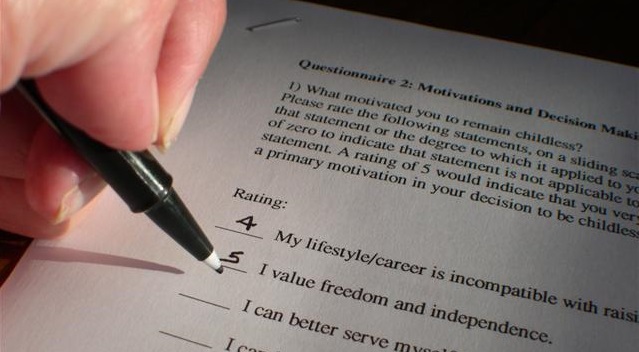 Questionnaire 2: Motivations and Decision
1) What motivated you to remain childless?
Please rate the following statements, on a sliding
that statement or the degree to which it applied to
of zero to indicate that statement is not applicable to
statement. A rating of 5 would indicate that you
a primary motivation in your decision to be
Rating:
4 My lifestyle/career is incompatible with
5 I value freedom and independence.
I can better serve
I